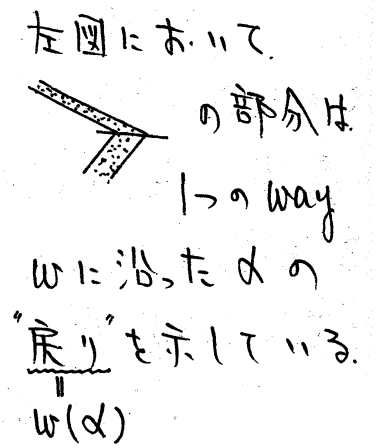 左図において、
の部分は
1つの way
wに沿ったαの
"戻り"を示している.
||
w(α)